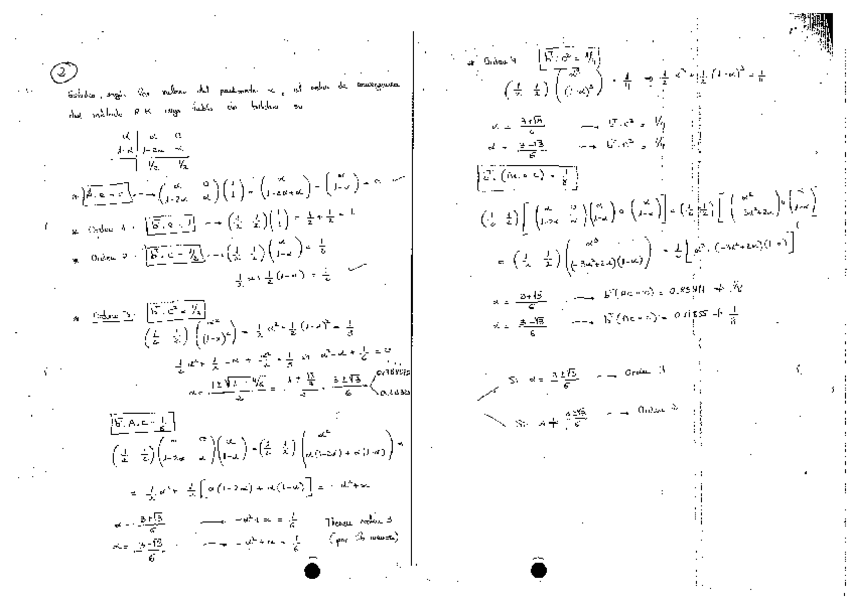 2
Estudia, según los valores del parámetro α, el orden de convergencia
del método RK cuya tabla de Butcher es
α | α 0
1-α | 1-2α α
| 1/2 1/2
* A·e = c → (α 0; 1-2α α)(1; 1) = (α; 1-2α+α) = (α; 1-α) = c
* Orden 1: b^T·e = 1 → (1/2 1/2)(1; 1) = 1/2 + 1/2 = 1
* Orden 2: b^T·c = 1/2 → (1/2 1/2)(α; 1-α) = 1/2
1/2 α + 1/2 (1-α) = 1/2
* Orden 3: b^T·c² = 1/3
(1/2 1/2)(α²; (1-α)²) = 1/2 α² + 1/2 (1-α)² = 1/3
1/2 α² + 1/2 - α + α²/2 = 1/3 α² - α + 1/6 = 0
α = = 3±√3/6
b^T·A·c = 1/6
(1/2 1/2)(α 0; 1-2α α)(α; 1-α) = (1/2 1/2)(α²; α(1-2α) + α(1-α)) =
= 1/2 α² + 1/2 [α(1-2α) + α(1-α)] = -α² + α
α = 3+√3/6 → -α² + α = 1/6
α = 3-√3/6 → -α² + α = 1/6
Tiene orden 3
(por lo menos)
* Orden 4 b^T·c³ = 1/4
(1/2 1/2)(α³; (1-α)³) = 1/4 → 1/2 α³ + 1/2 (1-α)³ = 1/4
α = 3+√3/6 → b^T·c³ = 1/4
α = 3-√3/6 → b^T·c³ = 1/4
b^T·(Ac·c) = 1/8
= (1/2 1/2)(α³; (-3α²+2α)(1-α)) = 1/2 [α³ + (-3α²+2α)(1-α)]
α = 3+√3/6 → b^T(Ac·c) = ≠ 1/8
α = 3-√3/6 → b^T(Ac·c) = ≠ 1/8
Si α = 3±√3/6 → Orden 3
Si α ≠ 3±√3/6 → Orden 2